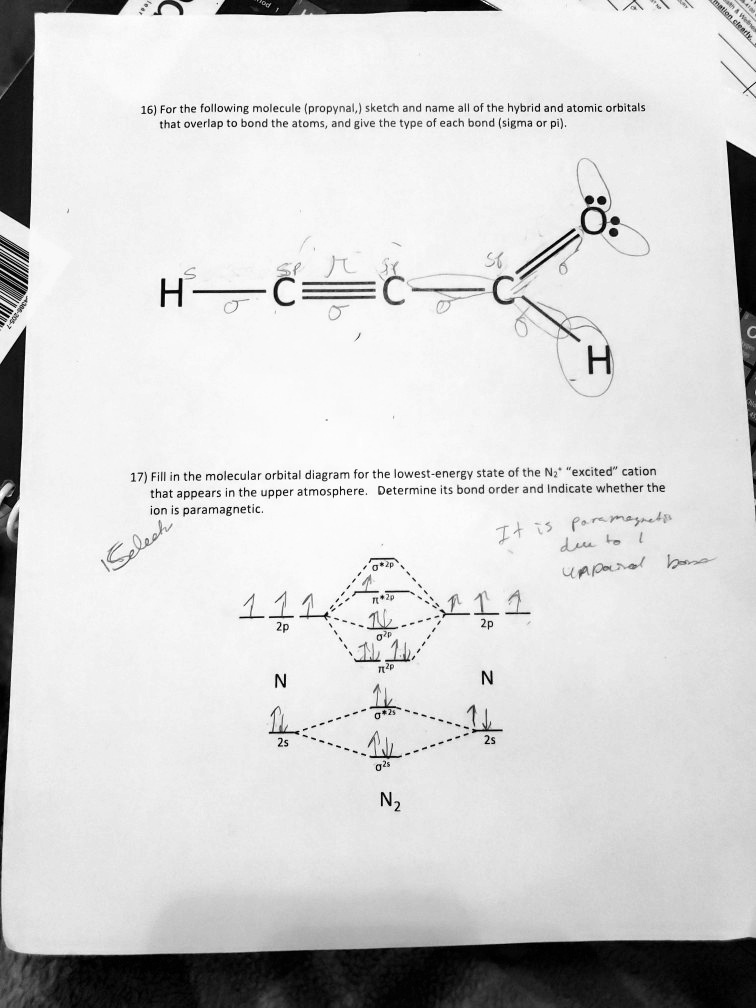 16) For the following molecule (propynal,) sketch and name all of the hybrid and atomic orbitals
that overlap to bond the atoms, and give the type of each bond (sigma or pi).
O
S
sp π sp
H C C C
σ σ σ σ σ
H
17) Fill in the molecular orbital diagram for the lowest-energy state of the N₂⁺ “excited” cation
that appears in the upper atmosphere. Determine its bond order and Indicate whether the
ion is paramagnetic.
It is paramagnetic
due to 1
unpaired
σ*2p
π*2p
2p σ2p 2p
π2p
N N
σ*2s
2s 2s
σ2s
N₂